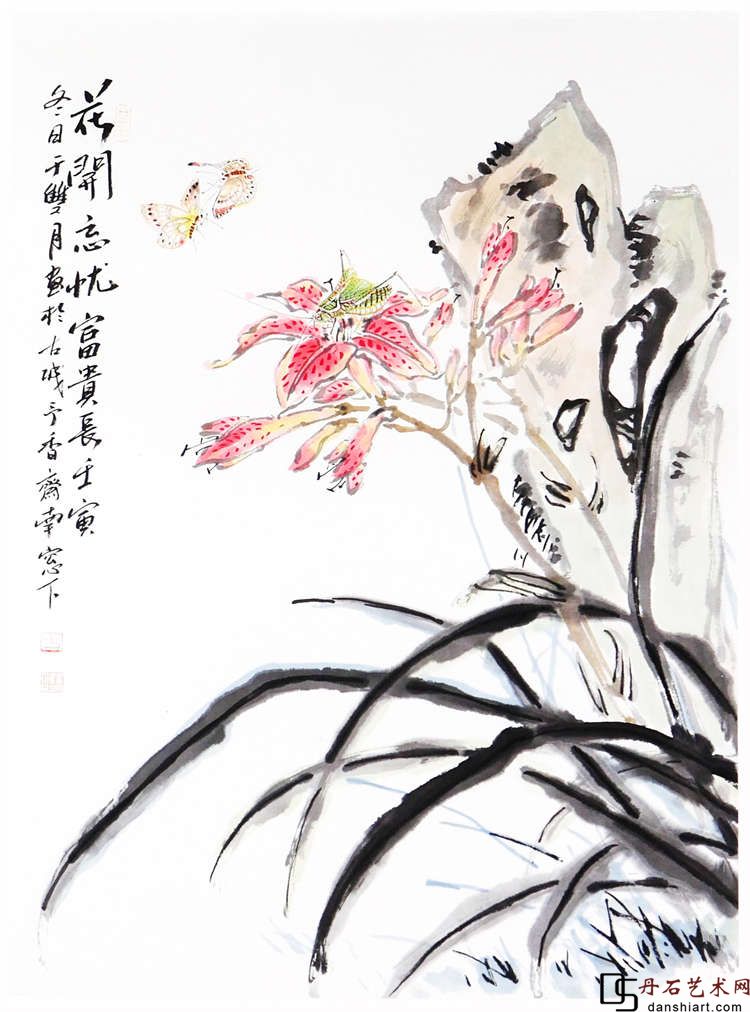 花開忘忧富貴長壬寅
冬日于雙月画於古城宁香齋南窓下
丹石艺术网
danshiart.com